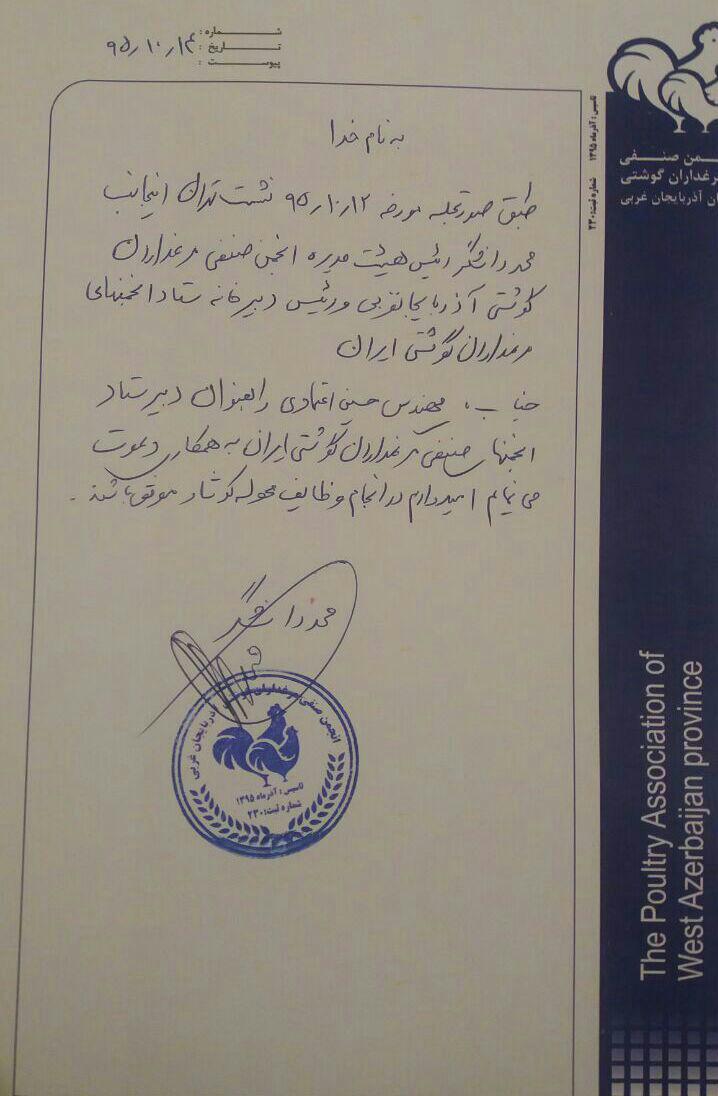 شماره :
تاریخ : ۹۵/۱۰/۱۴
پیوست :
به نام خدا
طبق صورتجلسه مورخه ۹۵/۱۰/۱۲ نشست تهران اینجانب
محمد دانشگر رئیس هیئت مدیره انجمن صنفی مرغداران
گوشتی آذربایجانغربی و رئیس دبیرخانه ستاد انجمنهای
مرغداران گوشتی ایران
جناب مهندس حسن اعتمادی را بعنوان دبیر ستاد
انجمنهای صنفی مرغداران گوشتی ایران به همکاری دعوت
می نمایم امیدوارم در انجام وظایف محوله کوشا و موفق باشند .
محمد دانشگر
انجمن صنفی مرغداران گوشتی آذربایجان غربی
تاسیس : آذرماه ۱۳۹۵
شماره ثبت: ۲۳۰
تاسیس : آذرماه ۱۳۹۵ شماره ثبت: ۲۳۰
ـمن صنفـی
رغداران گوشتی
ان آذربایجان غربی
The Poultry Association of
West Azerbaijan province